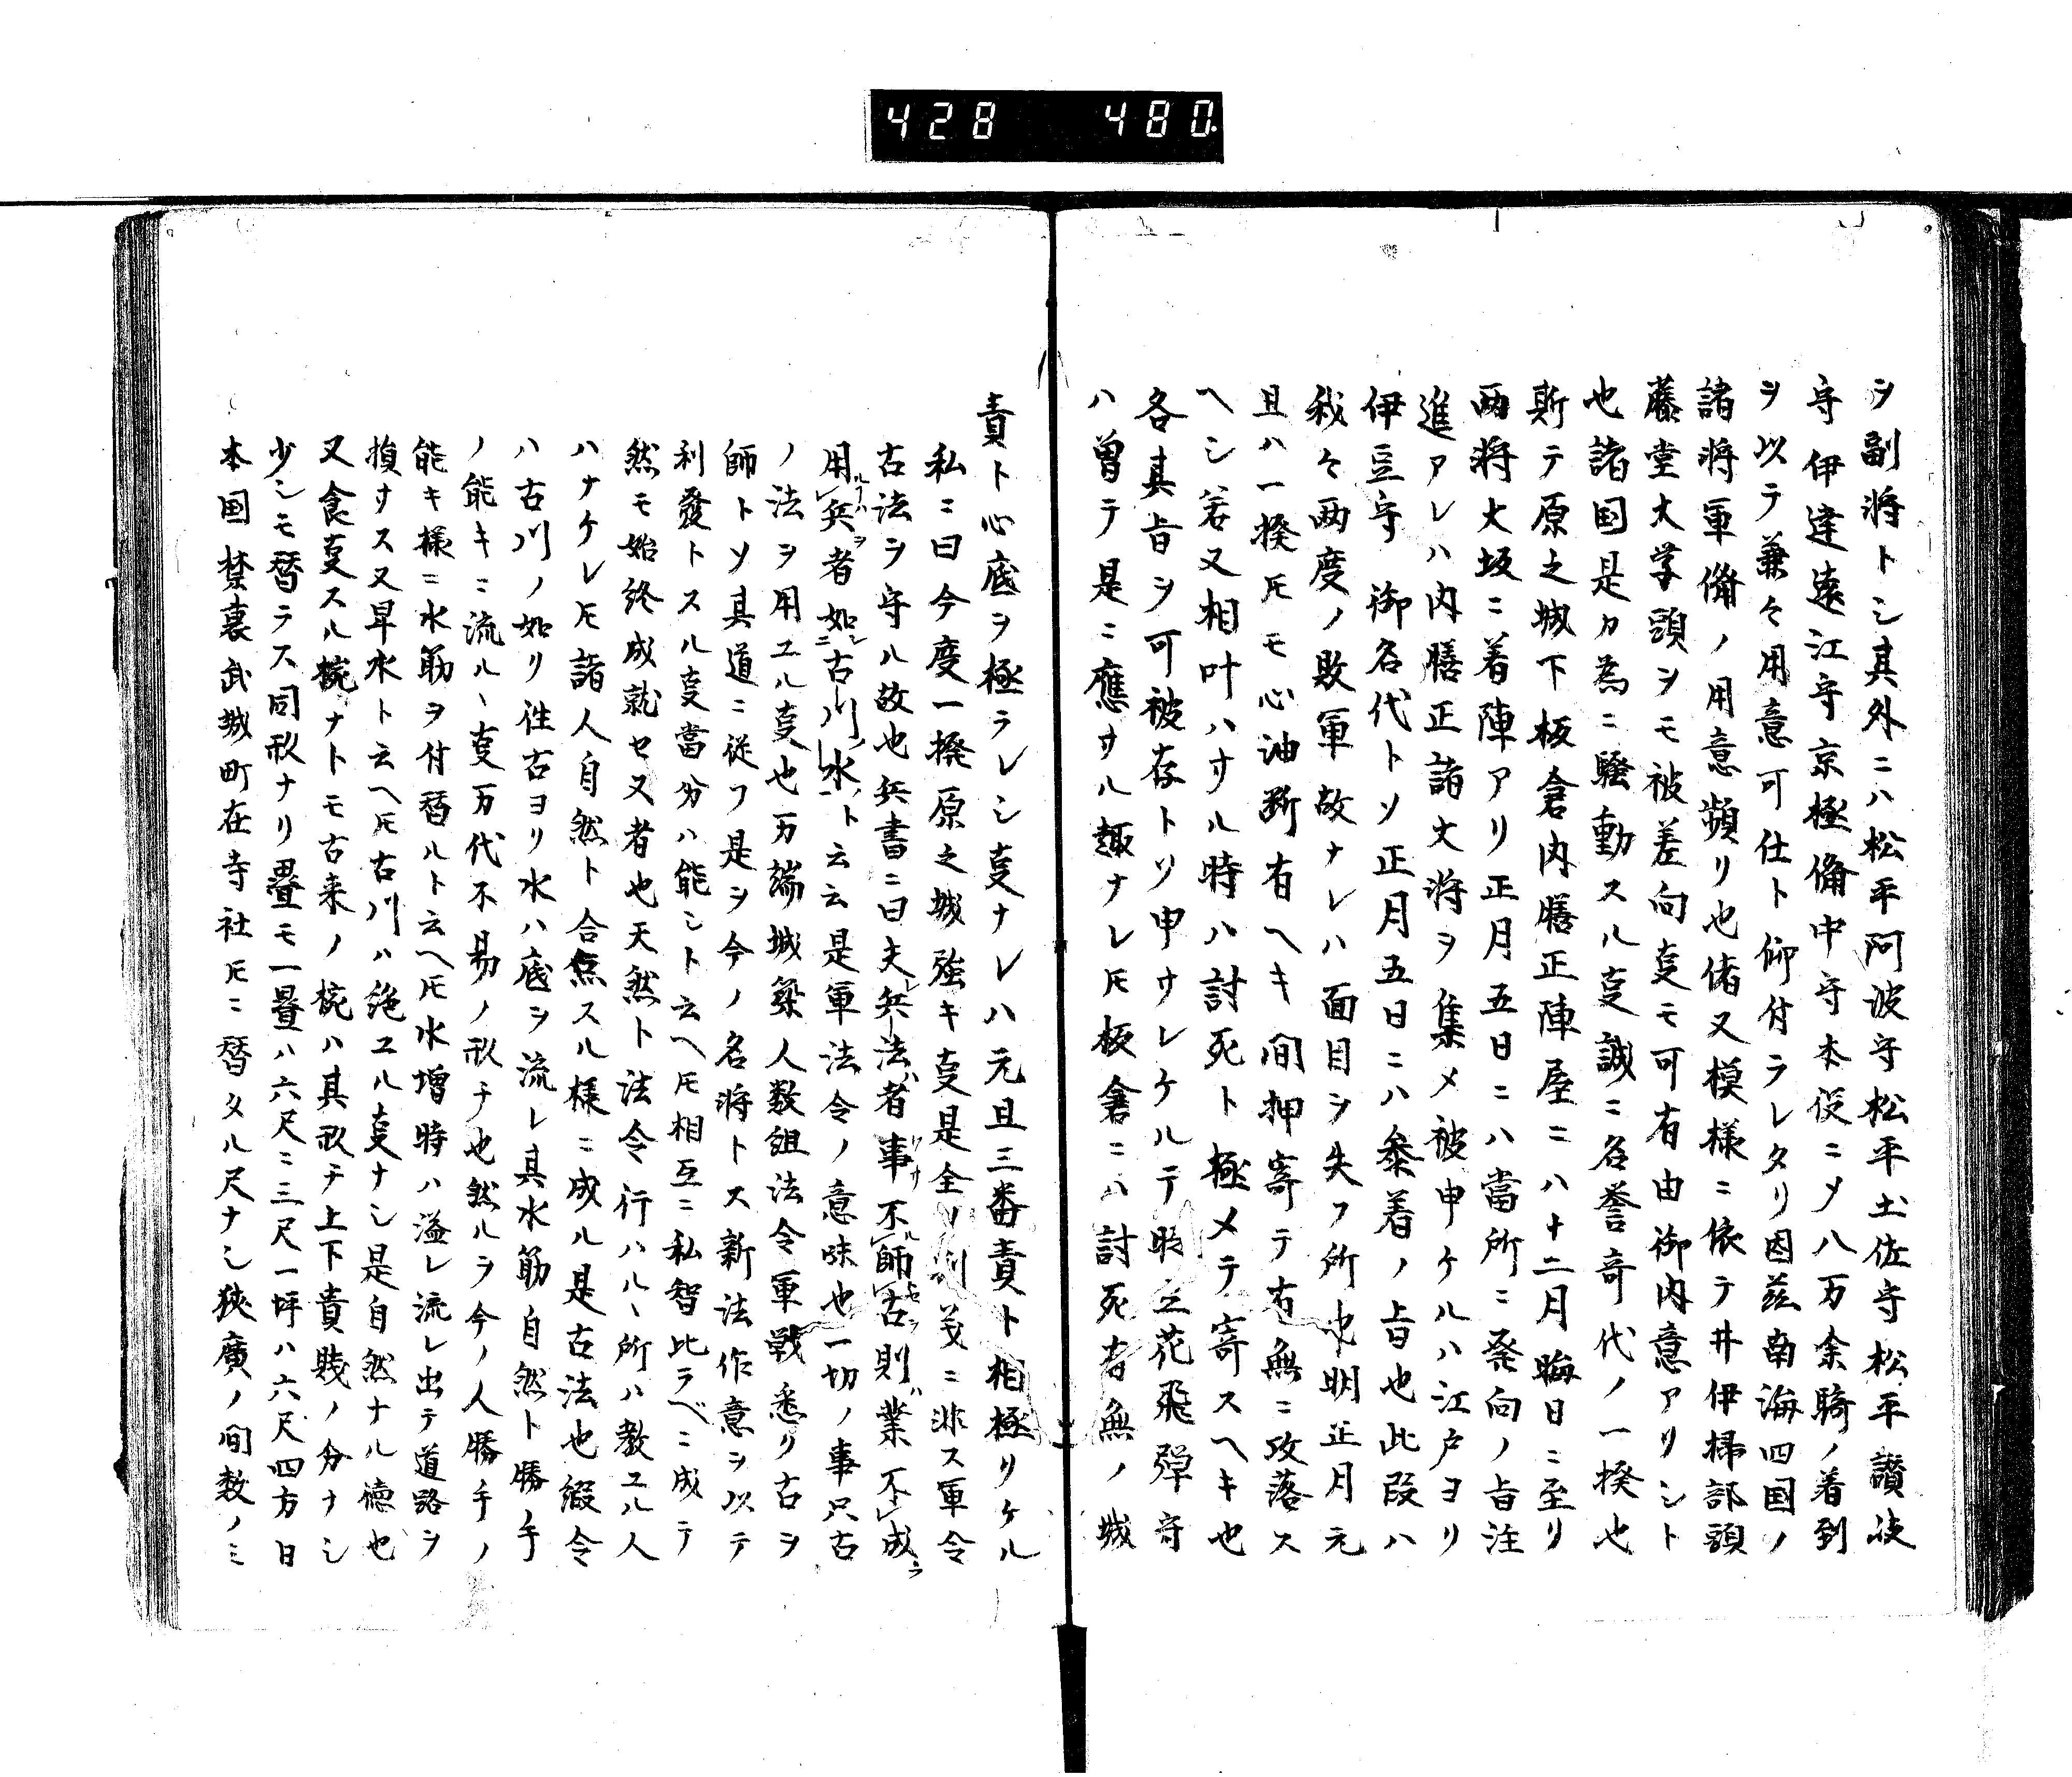 428 480
ヲ副将トシ其外ニハ松平阿波守松平土佐守松平讃岐
守伊達遠江守京極備中守本役ニメ八万余騎ノ着到
ヲ以テ兼々用意可仕ト仰付ラレタリ因茲南海四国ノ
諸将軍備ノ用意頻リ也偖又模様ニ依テ井伊掃部頭
藤堂大学頭ヲモ被差向㕝モ可有由御内意アリシト
也諸国是カ為ニ騒動スル㕝誠ニ名誉奇代ノ一揆也
斯テ原之城下板倉内膳正陣屋ニハ十二月晦日ニ至リ
両将大坂ニ着陣アリ正月五日ニハ當所ニ発向ノ旨注
進アレハ内膳正諸大将ヲ集メ被申ケルハ江戸ヨリ
伊豆守御名代トソ正月五日ニハ参着ノ旨也此段ハ
我々両度ノ敗軍故ナレハ面目ヲ失フ所也明正月元
且ハ一揆𪜈モ心油断有ヘキ間押寄テ有無ニ攻落ス
ヘシ若又相叶ハサル時ハ討死ト極メテ寄スヘキ也
各其旨ヲ可被存トソ申サレケルテ時立花飛弾守
ハ曽テ是ニ應サル趣ナレ𪜈板倉ニハ討死者無ノ城
責ト心底ヲ極ラレシ㕝ナレハ元且三番責ト相極リケル
私ニ曰今度一揆原之城強キ㕝是全ノ利㳒ニ非ス軍令
古法ヲ守ル故也兵書ニ曰夫兵法者事不師古則業不成
用兵者如古川水ト云云是軍法令ノ意味也一切ノ事只古
ノ法ヲ用ユル㕝也万端城築人数組法令軍戦悉リ古ヲ
師トソ其道ニ従フ是ヲ今ノ名将トス新法作意ヲ以テ
利發トスル㕝當分ハ能シト云ヘ𪜈相互ニ私智比ラベニ成テ
然モ始終成就セヌ者也天然ト法令行ハルヽ所ハ教ユル人
ハナケレ𪜈諸人自然ト合点スル様ニ成ル是古法也縦令
ハ古川ノ如リ往古ヨリ水ハ底ヲ流レ其水筋自然ト勝手
ノ能キニ流ルヽ㕝万代不易ノ形チ也然ルヲ今ノ人勝手ノ
能キ様ニ水筋ヲ付替ルト云ヘ𪜈水増時ハ溢レ流レ出テ道路ヲ
損ナス又旱水ト云ヘ𪜈古川ハ絶ユル㕝ナシ是自然ナル徳也
又食㕝スル椀ナトモ古来ノ椀ハ其形チ上下貴賤ノ分ナシ
少シモ替ラス同形ナリ畳モ一畳ハ六尺ニ三尺一坪ハ六尺四方日
本国禁裏武城町在寺社𪜈ニ替タル尺ナシ狭廣ノ間数ノミ